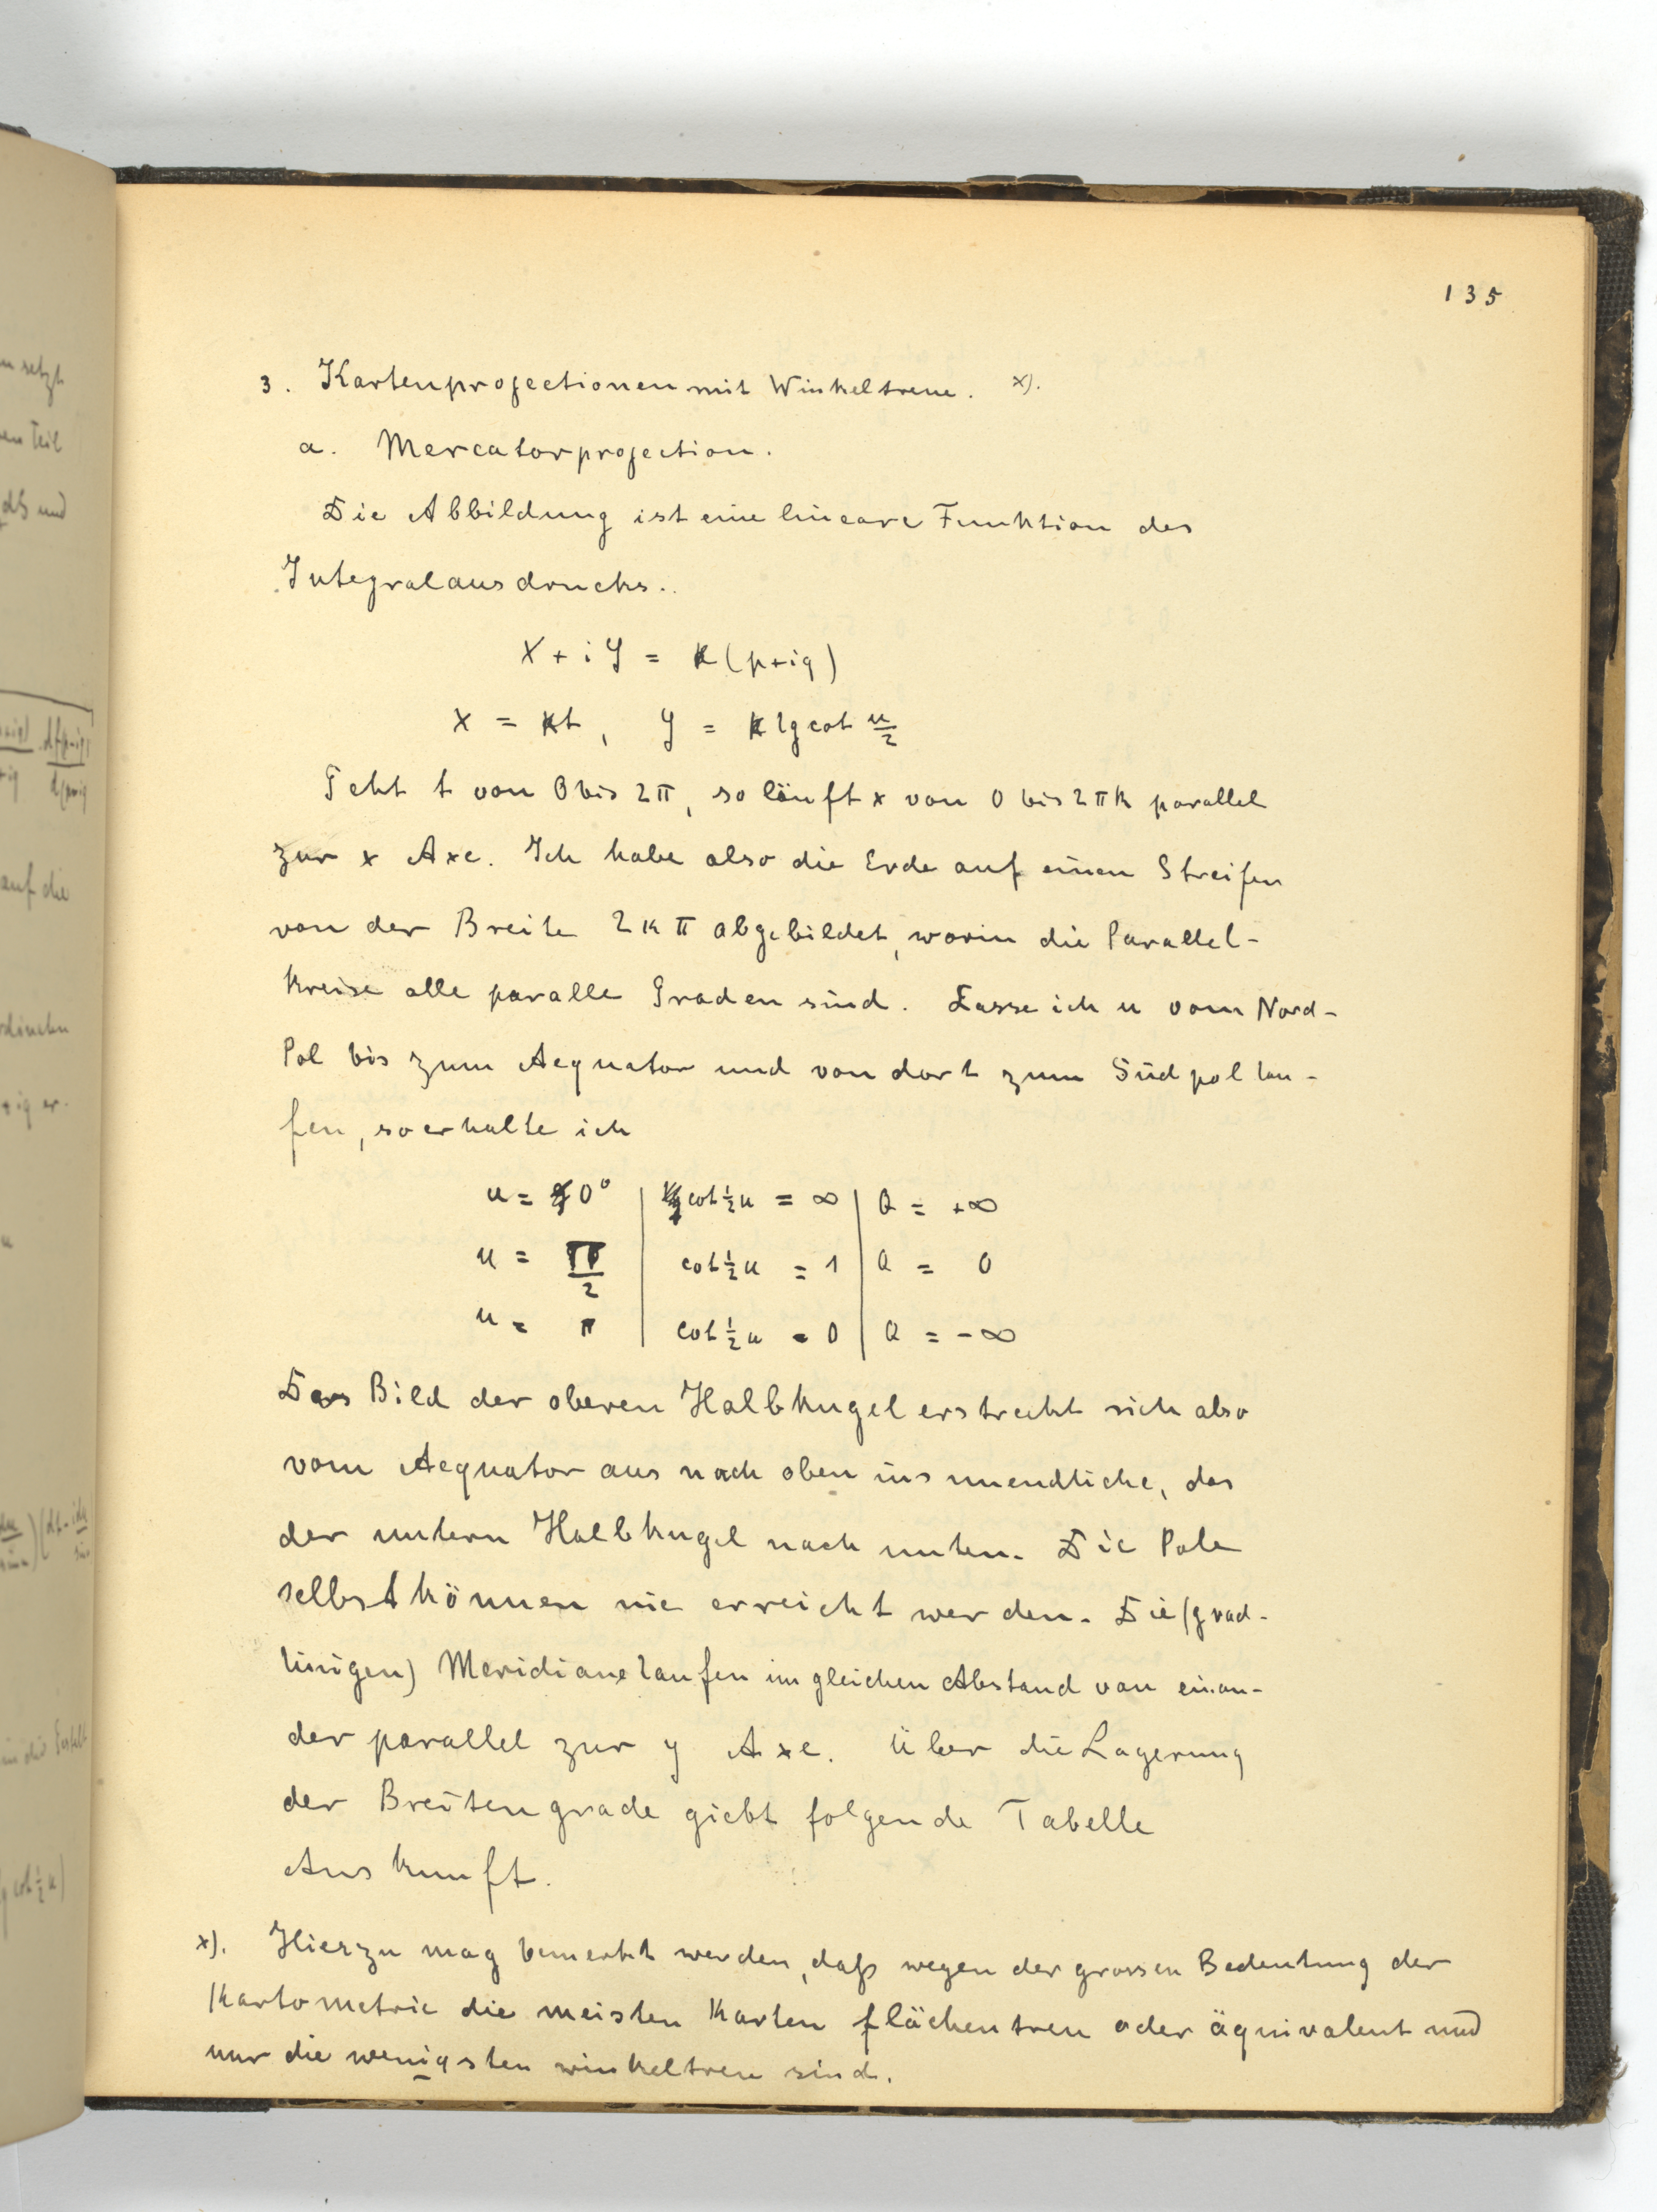 135
3. Kartenprojectionen mit Winkeltreue. x).
a. Mercatorprojection.
Die Abbildung ist eine lineare Funktion des
Integralausdrucks..
x + iy = k (p+iq)
x = kt, y = k lg cot u/2
Geht t von 0 bis 2π, so läuft x von 0 bis 2πk parallel
zur x Axe. Ich habe also die Erde auf einen Streifen
von der Breite 2kπ abgebildet, worin die Parallel-
kreise alle paralle Graden sind. Lasse ich u vom Nord-
Pol bis zum Aequator und von dort zum Südpol lau-
fen, so erhalte ich
u = 0° | cot ½u = ∞ | Q = +∞
u = π/2 | cot ½u = 1 | Q = 0
u = π | cot ½u = 0 | Q = -∞
Das Bild der oberen Halbkugel erstreckt sich also
vom Aequator aus nach oben ins unendliche, das
der untern Halbkugel nach unten. Die Pole
selbst können nie erreicht werden. Die (grad-
linigen) Meridiane laufen im gleichen Abstand von einan-
der parallel zur y Axe. Über die Lagerung
der Breitengrade giebt folgende Tabelle
Auskunft.
x). Hierzu mag bemerkt werden, daß wegen der grossen Bedeutung der
Kartometrie die meisten Karten flächentreu oder äquivalent und
nur die wenigsten winkeltreu sind.